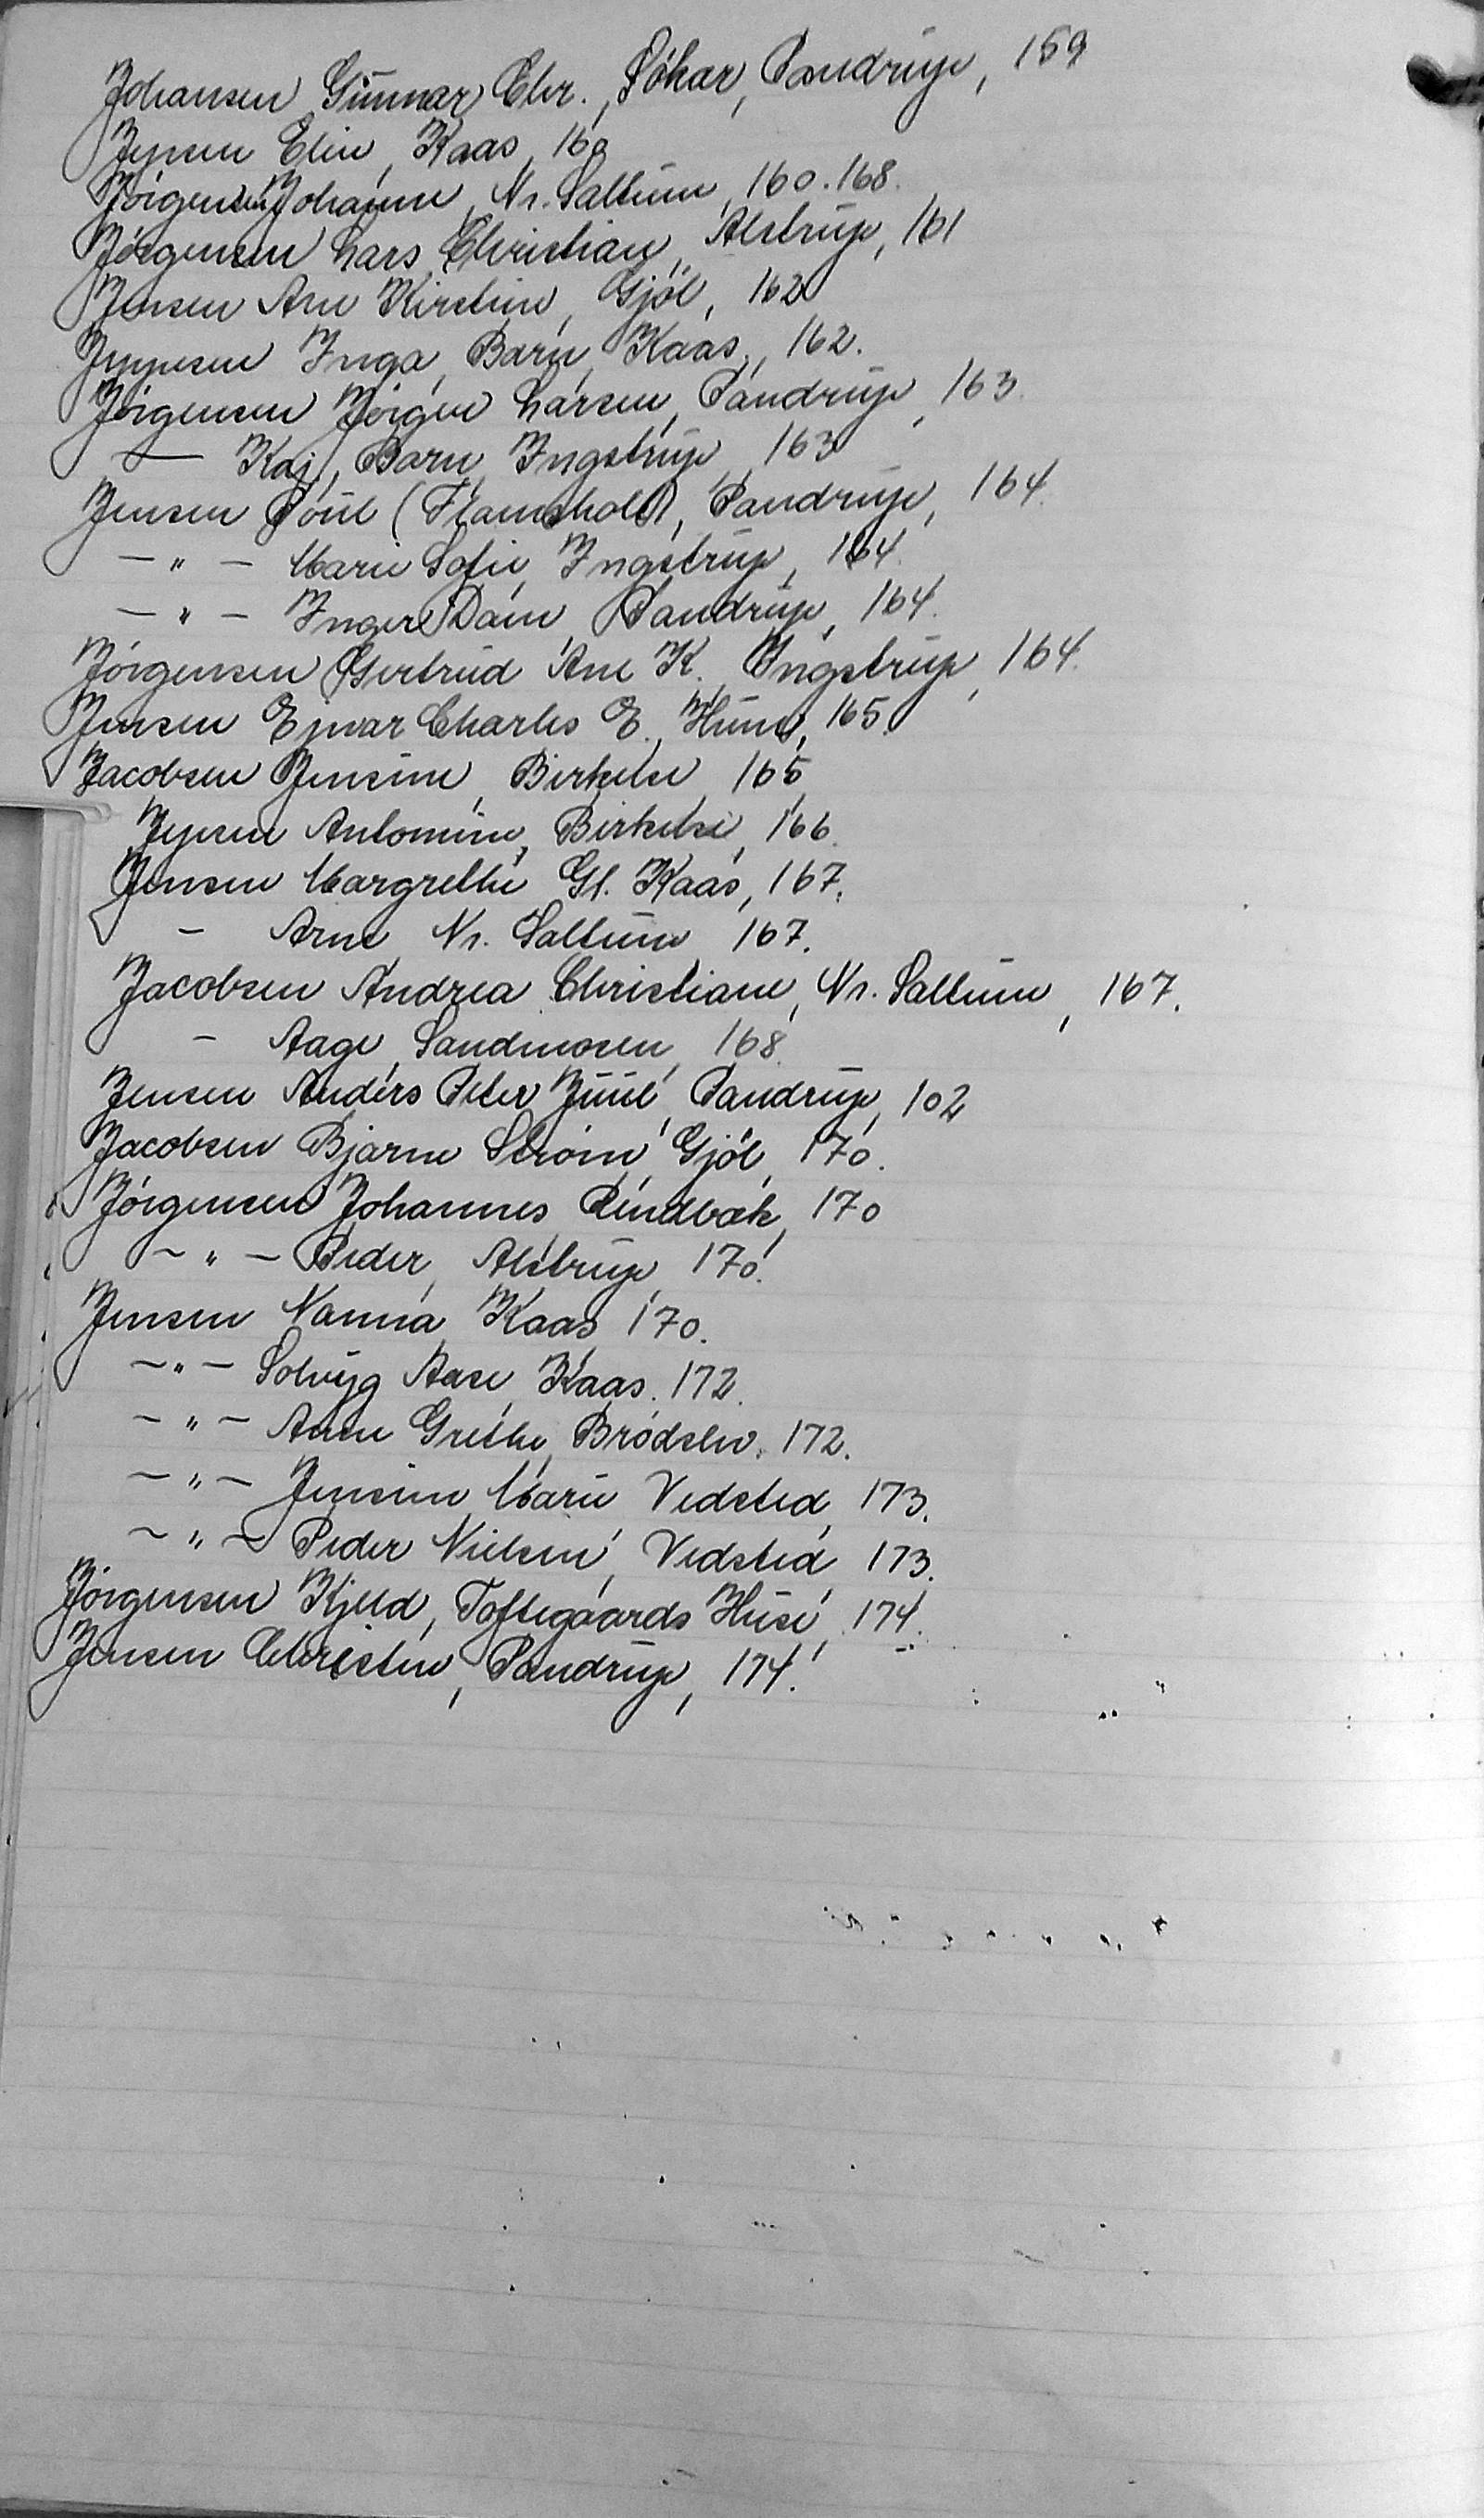 Johansen Gunnar Chr., Søkær, Pandrup, 159
Jepsen Elin, Kaas, 160
Jørgensen Johanne, Nr. Saltum, 160.168.
Jørgensen Lars Christian, Alstrup, 161
Jensen Ane Kirstine, Gjøl, 162
Jeppesen Inga, Barn, Kaas, 162.
Jørgensen Jørgen Larsen, Pandrup, 163.
— Kaj, Barn, Ingstrup, 163
Jensen Poul (Flamsholt), Pandrup, 164.
— " — Marie Sofie, Ingstrup, 164.
— " — Inger Dam, Pandrup, 164.
Jørgensen Gertrud Ane K. Ingstrup, 164.
Jensen Ejnar Charles E., Hune, 165.
Jacobsen Jensine, Birkelse, 165
Jepsen Antomine, Birkelse, 166.
Jensen Margrethe Gl. Kaas, 167.
— Arne, Nr. Saltum 167.
Jacobsen Andrea Christiane, Nr. Saltum, 167.
— Aage, Sandmosen, 168.
Jensen Anders Peter Juul, Pandrup, 102
Jacobsen Bjarne Strøm, Gjøl, 170.
Jørgensen Johannes, Rendbæk, 170
— " — Peder, Alstrup, 170.
Jensen Nanna, Kaas 170.
— " — Solvejg Aase, Kaas. 172.
— " — Anne Grethe, Brødslev. 172.
— " — Jensine Marie, Vedsted, 173.
— " — Peder Nielsen, Vedsted, 173.
Jørgensen Kjeld, Toftegaards Huse, 174.
Jensen Christine, Pandrup, 174.